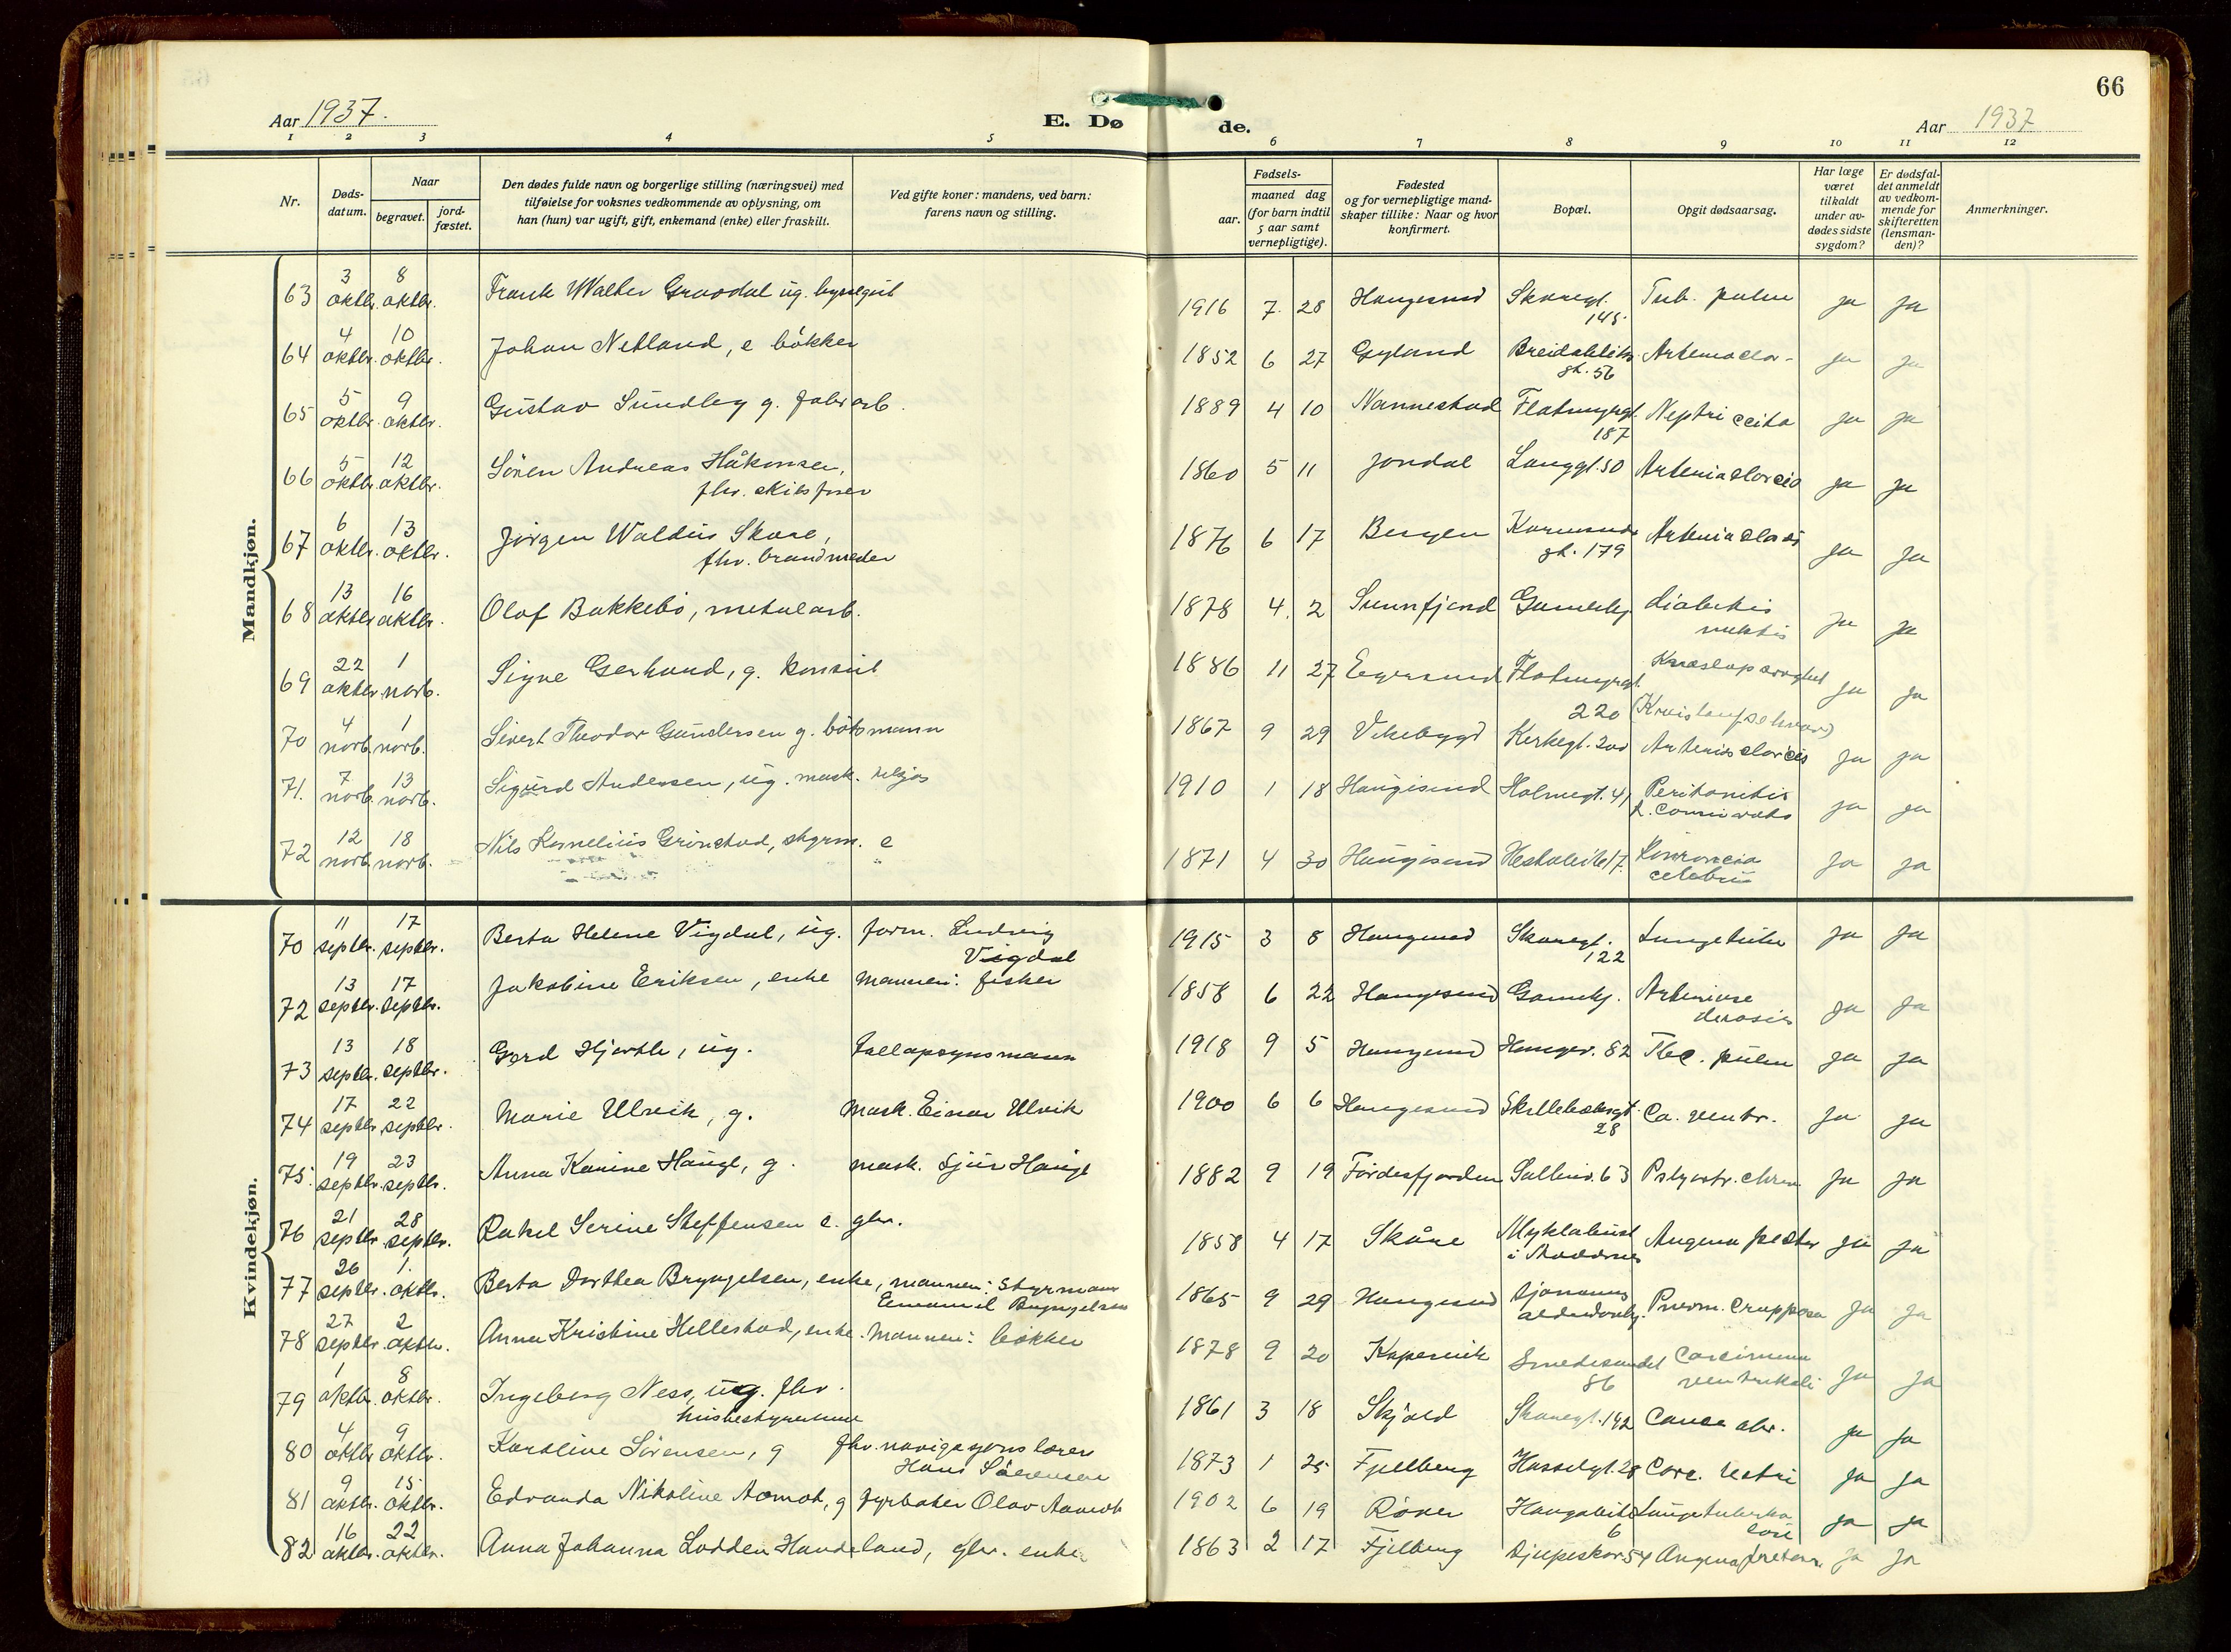 66
Aar 1937.
E. Dø
de.
Aar 1937
1 2 3 4 5 6 7 8 9 10 11 12
Nr.
Døds-
datum.
Naar
begravet.
jord-
fæstet.
Den dødes fulde navn og borgerlige stilling (næringsvei) med
tilføielse for voksnes vedkommende av oplysning, om
han (hun) var ugift, gift, enkemand (enke) eller fraskilt.
Ved gifte koner: mandens, ved barn:
farens navn og stilling.
Fødsels-
aar.
maaned dag
(for barn indtil
5 aar samt
vernepligtige).
Fødested
og for vernepligtige mand-
skaper tillike: Naar og hvor
konfirmert.
Bopæl.
Opgit dødsaarsag.
Har læge
været
tilkaldt
under av-
dødes sidste
sygdom?
Er dødsfal-
det anmeldt
av vedkom-
mende for
skifteretten
(lensman-
den)?
Anmerkninger.
Mandkjøn.
63 3 oktbr. 8 oktbr. Frank Walter Graodal ug. 1916 7. 28 Haugesund Skaregt. 145. Tub. pulm ja ja
64 4 oktbr. 10 oktbr. Johan Netland, e bøkker 1852 6 27 Gyland Breidabliks gt. 56 ja ja
65 5 oktbr. 9 oktbr. Gustav Sundby g. fabr arb. 1889 4 10 Nannestad Flotmyrgt. 187 ja ja
66 5 oktbr. 12 oktbr. Sören Andreas Håkonsen,
fhv. skibsfører 1860 5 11 Jondal Langgt. 50 ja ja
67 6 oktbr. 13 oktbr. Jörgen Waldus Skare,
fhv. brandmester 1876 6 17 Bergen Karmsunds gt. 179 ja ja
68 13 oktbr. 16 oktbr. Olaf Bakkebö, metalarb. 1878 4. 2 Sunnfjord Gamleby diabetis ja ja
69 22 oktbr. 1 novb. Signe Gerhard, g. konsul 1886 11 27 Egersund Flotmyrgt. 220 ja ja
70 4 novb. 1 novb. Sivert Theodor Gundersen g. båtsmann 1867 9 29 Vikebygd Kirkegt. 200 ja ja
71. 7 novb. 13 novb. Sigurd Andersen, ug. mask. 1910 1 18 Haugesund Holmegt. 41 Peritonitis ja ja
72 12 novb. 18 novb. Nils Kornelius Grinstad, styrm. e 1871 4 30 Haugesund 17. ja ja
Kvindekjøn.
70 11 septbr. 17 septbr. Berta Helene Vigdal, ug. form. Ludvig
Vigdal 1915 3 8 Haugesund Skaregt. 122 Lungetub ja ja
72 13 septbr. 17 septbr. Jakobine Eriksen, enke mannen: fisker 1858 6 22 Haugesund Gamleby. ja ja
73 13 septbr. 18 septbr. Gerd Hjertle, ug. 1918 9 5 Haugesund Haugev. 82 Tbc. pulm ja ja
74 17 septbr. 22 septbr. Marie Ulvik, g. mask. Einar Ulvik 1900 6 6 Haugesund 28 Ca. ventr. ja ja
75. 19 septbr. 23 septbr. Anna Karine Hauge, g. mask. Sjur Hauge 1882 9 19 Fördesfjorden Salhusv. 63 ja ja
76 21 septbr. 28 septbr. Rakel Serine Steffensen e. gbr. 1858 4 17 Skåre Myklebust i Angina pector ja ja
77 26 septbr. 1. oktbr. Berta Dorthea Bryngelsen, enke, mannen: styrmann
Emanuel Bryngelsen 1865 9 29 Haugesund Sjömanns aldershvby. Pnevm. crupposa ja ja
78 27 septbr. 2 oktbr. Anna Kristine Hellestad, enke. Mannen: bøkker 1878 9 20 Kopervik Smedesundet 86 Carcinoma ventrikuli ja ja
79 1 oktbr. 8 oktbr. Ingeborg Ness, ug. fhv.
husbestyrerinne 1861 3 18 Skjold Skaregt. 142 Cancer abv. ja ja
80 4 oktbr. 9 oktbr. Karoline Sörensen, g fhv. navigasjonslærer
Hans Sörensen 1873 1 25 Fjellberg Hasselgt. 28 Carc. ja ja
81 9 oktbr. 15 oktbr. Edvarda Nikoline Aamot, g fyrbøter Olav Aamot 1902 6 19 Röver 6 Lungetuberku lose ja ja
82 16 oktbr. 22 oktbr. Anna Johanna Lodden Handeland, gbr. enke 1863 2 17 Fjelberg Djupaskar 54 Angina ja ja